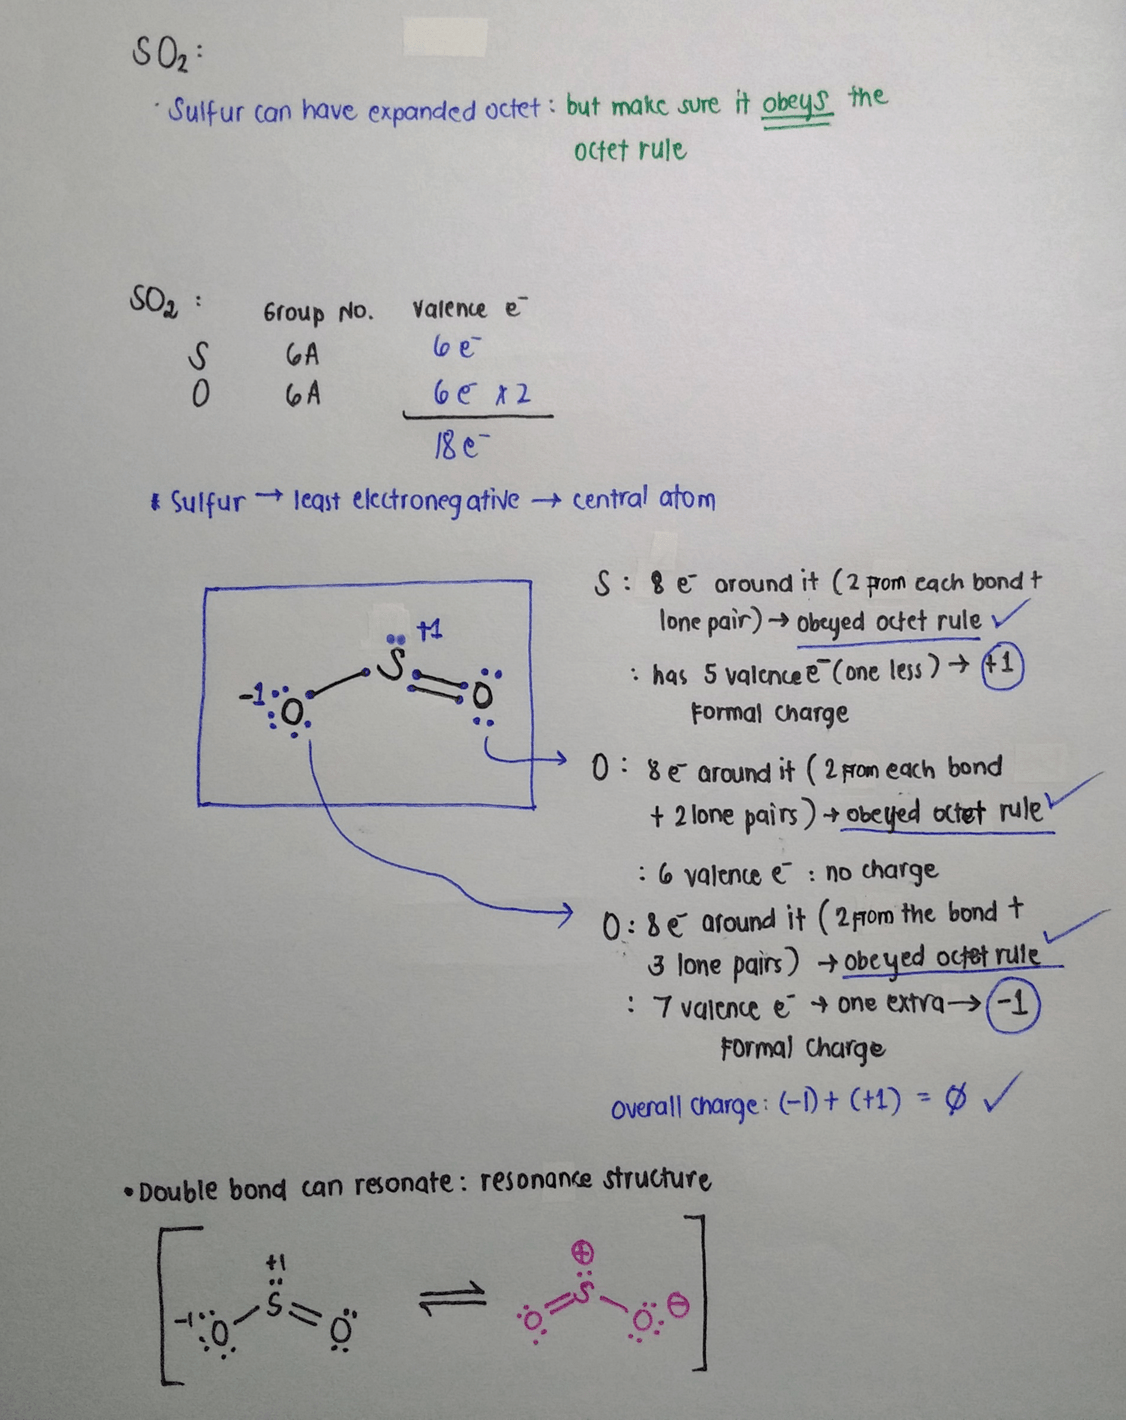 SO₂:
· Sulfur can have expanded octet: but make sure it obeys the
octet rule
SO₂ : Group No. valence e⁻
S 6A 6e⁻
O 6A 6e⁻ x2
18e⁻
* Sulfur → least electronegative → central atom
S : 8 e⁻ around it (2 from each bond +
lone pair) → obeyed octet rule ✓
: has 5 valence e⁻ (one less) → +1
Formal charge
+1
S
-1 O O
O : 8e⁻ around it (2 from each bond
+ 2 lone pairs) → obeyed octet rule ✓
: 6 valence e⁻ : no charge
O : 8e⁻ around it (2 from the bond +
3 lone pairs) → obeyed octet rule ✓
: 7 valence e⁻ → one extra → -1
Formal charge
overall charge: (-1) + (+1) = ∅ ✓
• Double bond can resonate: resonance structure
+1 ⊕
S ⇌ S
-1 O O O O ⊖